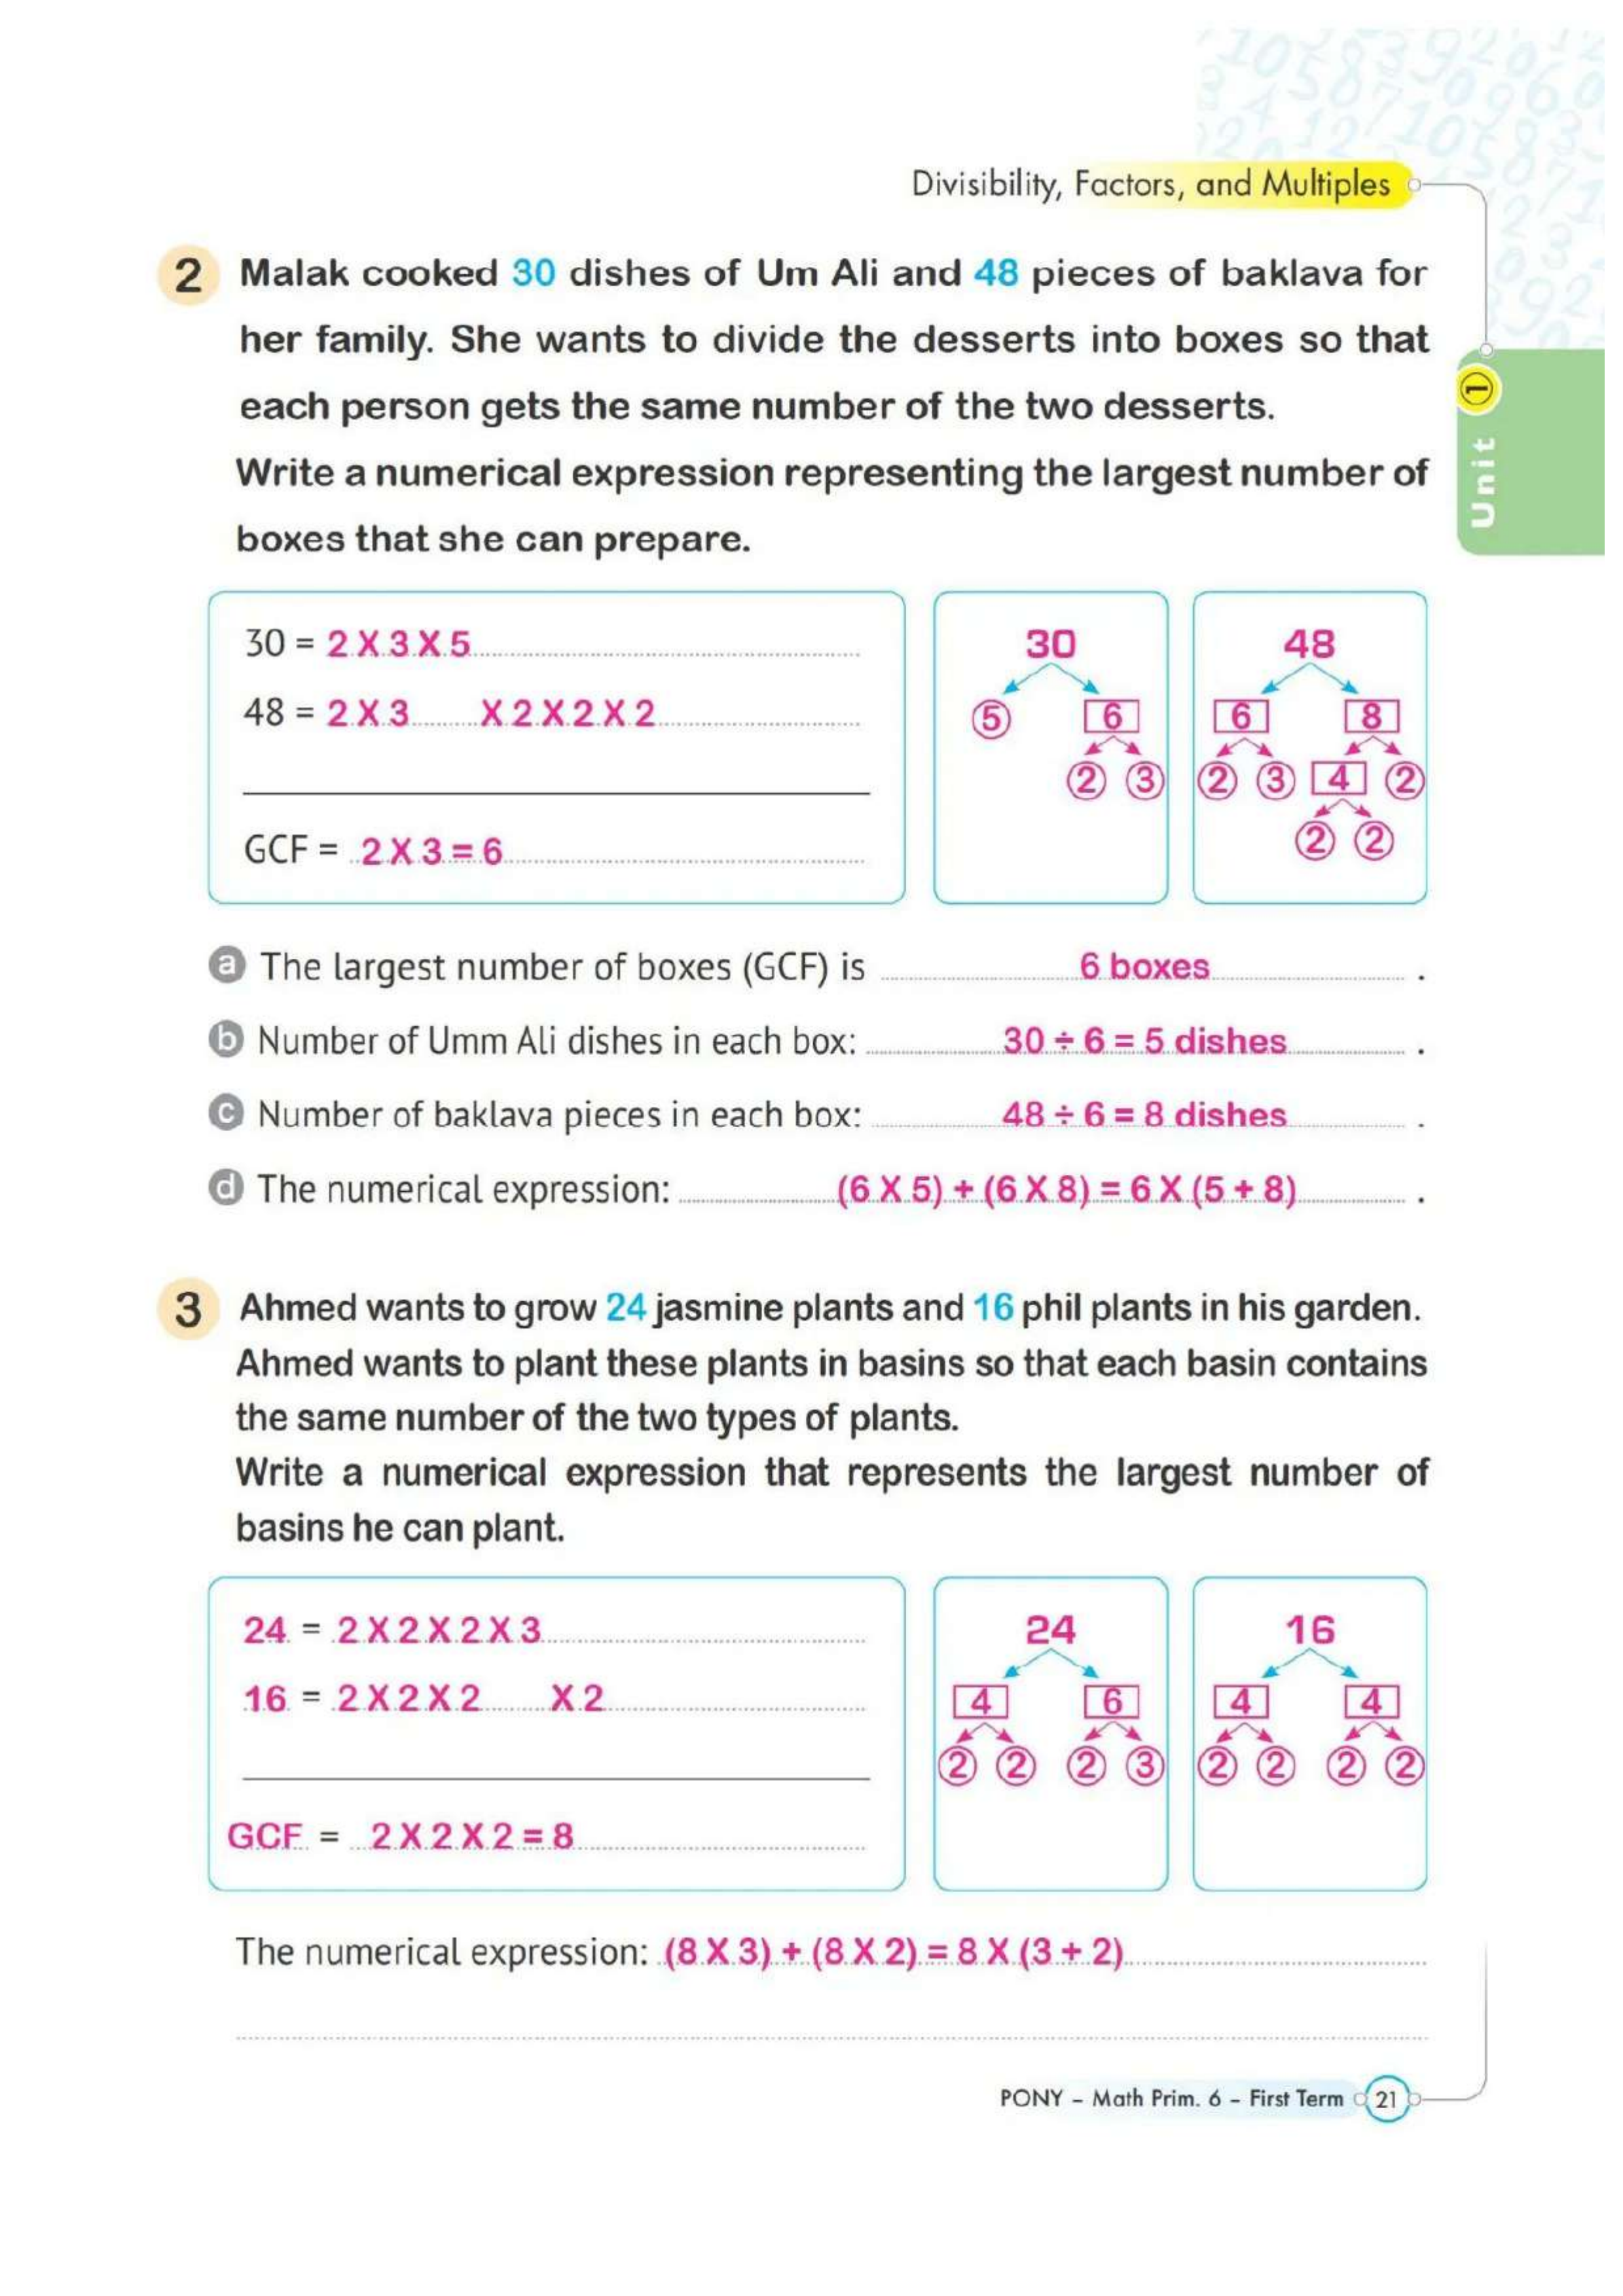 Divisibility, Factors, and Multiples
Unit 1
2 Malak cooked 30 dishes of Um Ali and 48 pieces of baklava for
her family. She wants to divide the desserts into boxes so that
each person gets the same number of the two desserts.
Write a numerical expression representing the largest number of
boxes that she can prepare.
30 = 2 X 3 X 5
48 = 2 X 3 X 2 X 2 X 2
GCF = 2 X 3 = 6
30
5 6
2 3
48
6 8
2 3 4 2
2 2
a The largest number of boxes (GCF) is 6 boxes .
b Number of Umm Ali dishes in each box: 30 ÷ 6 = 5 dishes .
c Number of baklava pieces in each box: 48 ÷ 6 = 8 dishes .
d The numerical expression: (6 X 5) + (6 X 8) = 6 X (5 + 8) .
3 Ahmed wants to grow 24 jasmine plants and 16 phil plants in his garden.
Ahmed wants to plant these plants in basins so that each basin contains
the same number of the two types of plants.
Write a numerical expression that represents the largest number of
basins he can plant.
24 = 2 X 2 X 2 X 3
16 = 2 X 2 X 2 X 2
GCF = 2 X 2 X 2 = 8
24
4 6
2 2 2 3
16
4 4
2 2 2 2
The numerical expression: (8 X 3) + (8 X 2) = 8 X (3 + 2)
PONY - Math Prim. 6 - First Term 21